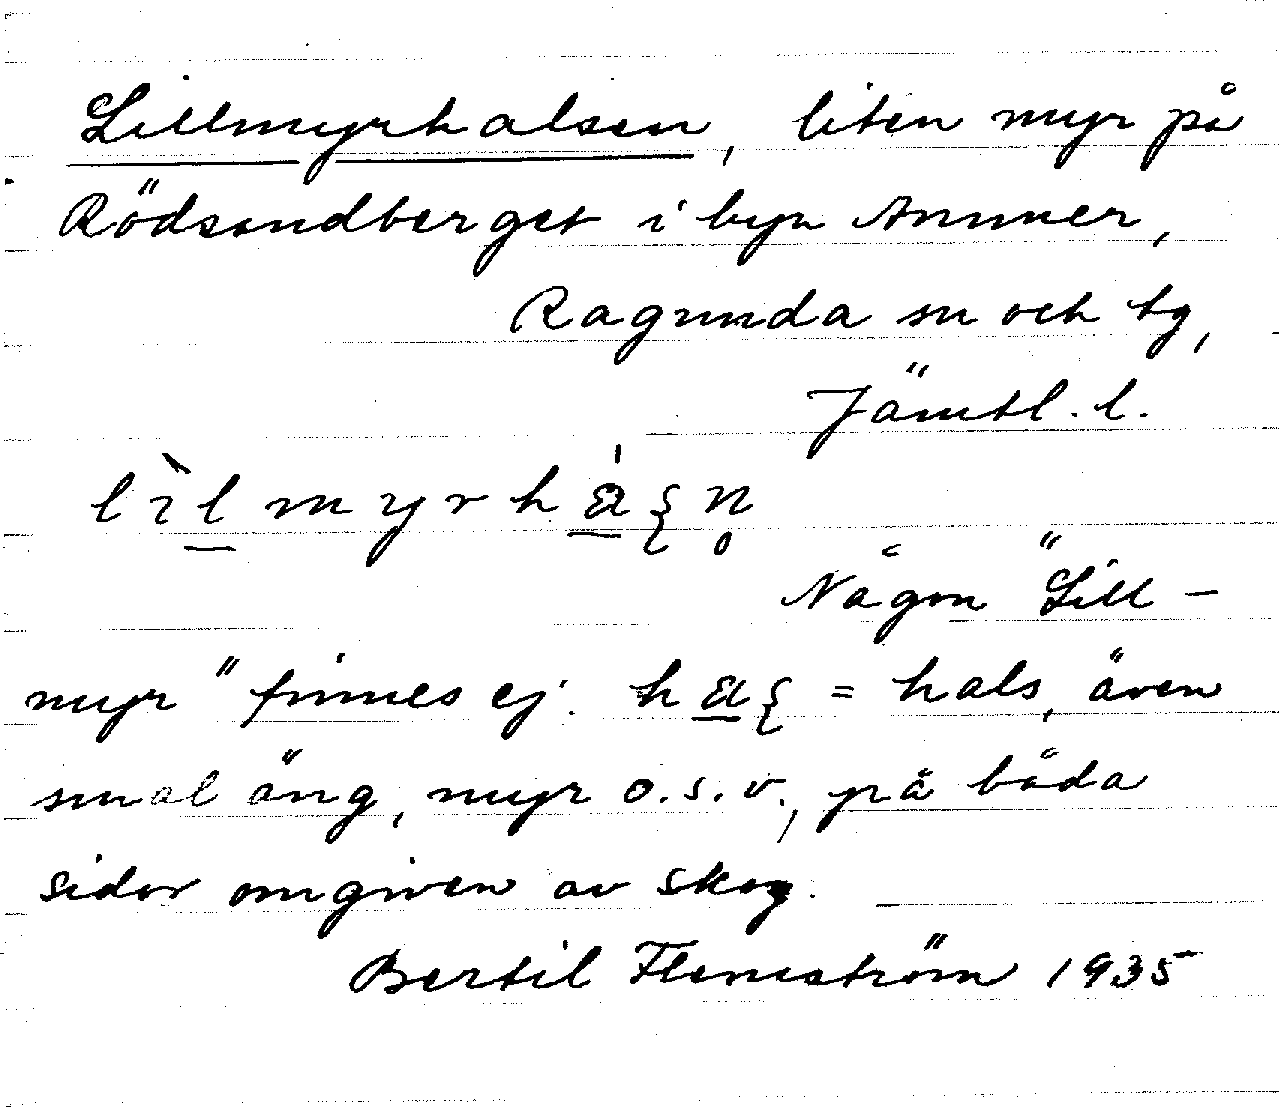 Lillmyrhalsen, liten myr på
Rödsandberget i byn Ammer,
Ragunda sn och tg,
Jämtl. l.
Någon "Lill-
myr" finnes ej. = hals, även
smal äng, myr o.s.v., på båda
sidor omgiven av skog.
Bertil Flemström 1935